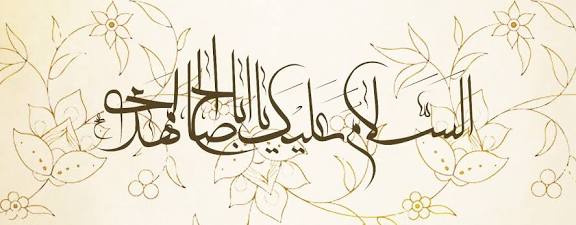 السّلام علیک یا اباصالح المهدی عج